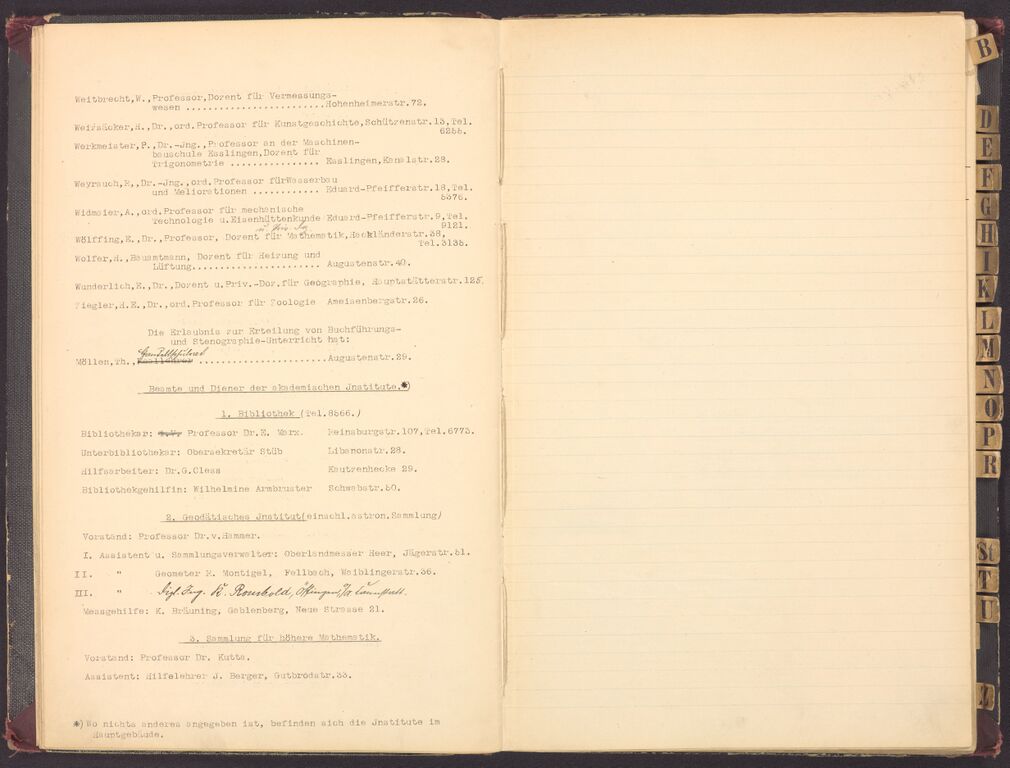 Weitbrecht,W.,Professor,Dozent für Vermessungs-
wesen ......................Hohenheimerstr.72.
Weizsäcker,H.,Dr.,ord.Professor für Kunstgeschichte,Schützenstr.13,Tel.
6255.
Werkmeister,P.,Dr.-Jng.,Professor an der Maschinen-
bauschule Esslingen,Dozent für
Trigonometrie .............. Esslingen,Kanalstr.28.
Weyrauch,R.,Dr.-Jng.,ord.Professor fürWasserbau
und Meliorationen ........... Eduard-Pfeifferstr.18,Tel.
5376.
Widmaier,A.,ord.Professor für mechanische
Technologie u.Eisenhüttenkunde Eduard-Pfeifferstr.9,Tel.
9121.
Wölffing,E.,Dr.,Professor, Dozent für Mathematik,Hackländerstr.38,
Tel.3135.
Wolfer,H.,Bauamtmann, Dozent für Heizung und
Lüftung..................... Augustenstr.40.
Wunderlich,E.,Dr.,Dozent u.Priv.-Doz.für Geographie, Hauptstätterstr.125.
Ziegler,H.E.,Dr.,ord.Professor für Zoologie Ameisenbergstr.26.
Die Erlaubnis zur Erteilung von Buchführungs-
und Stenographie-Unterricht hat:
Handelsschulrat
Möllen,Th., .....................Augustenstr.29.
Beamte und Diener der akademischen Jnstitute.*)
1. Bibliothek (Tel.8566.)
Bibliothekar: i.V. Professor Dr.E. Marx. Reinsburgstr.107,Tel.6773.
Unterbibliothekar: Obersekretär Stüb Libanonstr.28.
Hilfsarbeiter: Dr.G.Cless Kautzenhecke 29.
Bibliothekgehilfin: Wilhelmine Armbruster Schwabstr.50.
2. Geodätisches Jnstitut(einschl.astron.Sammlung)
Vorstand: Professor Dr.v.Hammer.
I. Assistent u. Sammlungsverwalter: Oberlandmesser Heer, Jägerstr.51.
II. " Geometer R. Montigel, Fellbach, Waiblingerstr.36.
III. " Dipl. Ing. K. Ronsbold, Öffingen, O/A Cannstatt.
Messgehilfe: K. Bräuning, Gablenberg, Neue Strasse 21.
3. Sammlung für höhere Mathematik.
Vorstand: Professor Dr. Kutta.
Assistent: Hilfslehrer J. Berger, Gutbrodstr.33.
*)Wo nichts anderes angegeben ist, befinden sich die Jnstitute im
Hauptgebäude.
B
D
E
F
G
H
I
K
L
M
N
O
P
R
St
T
U
Z